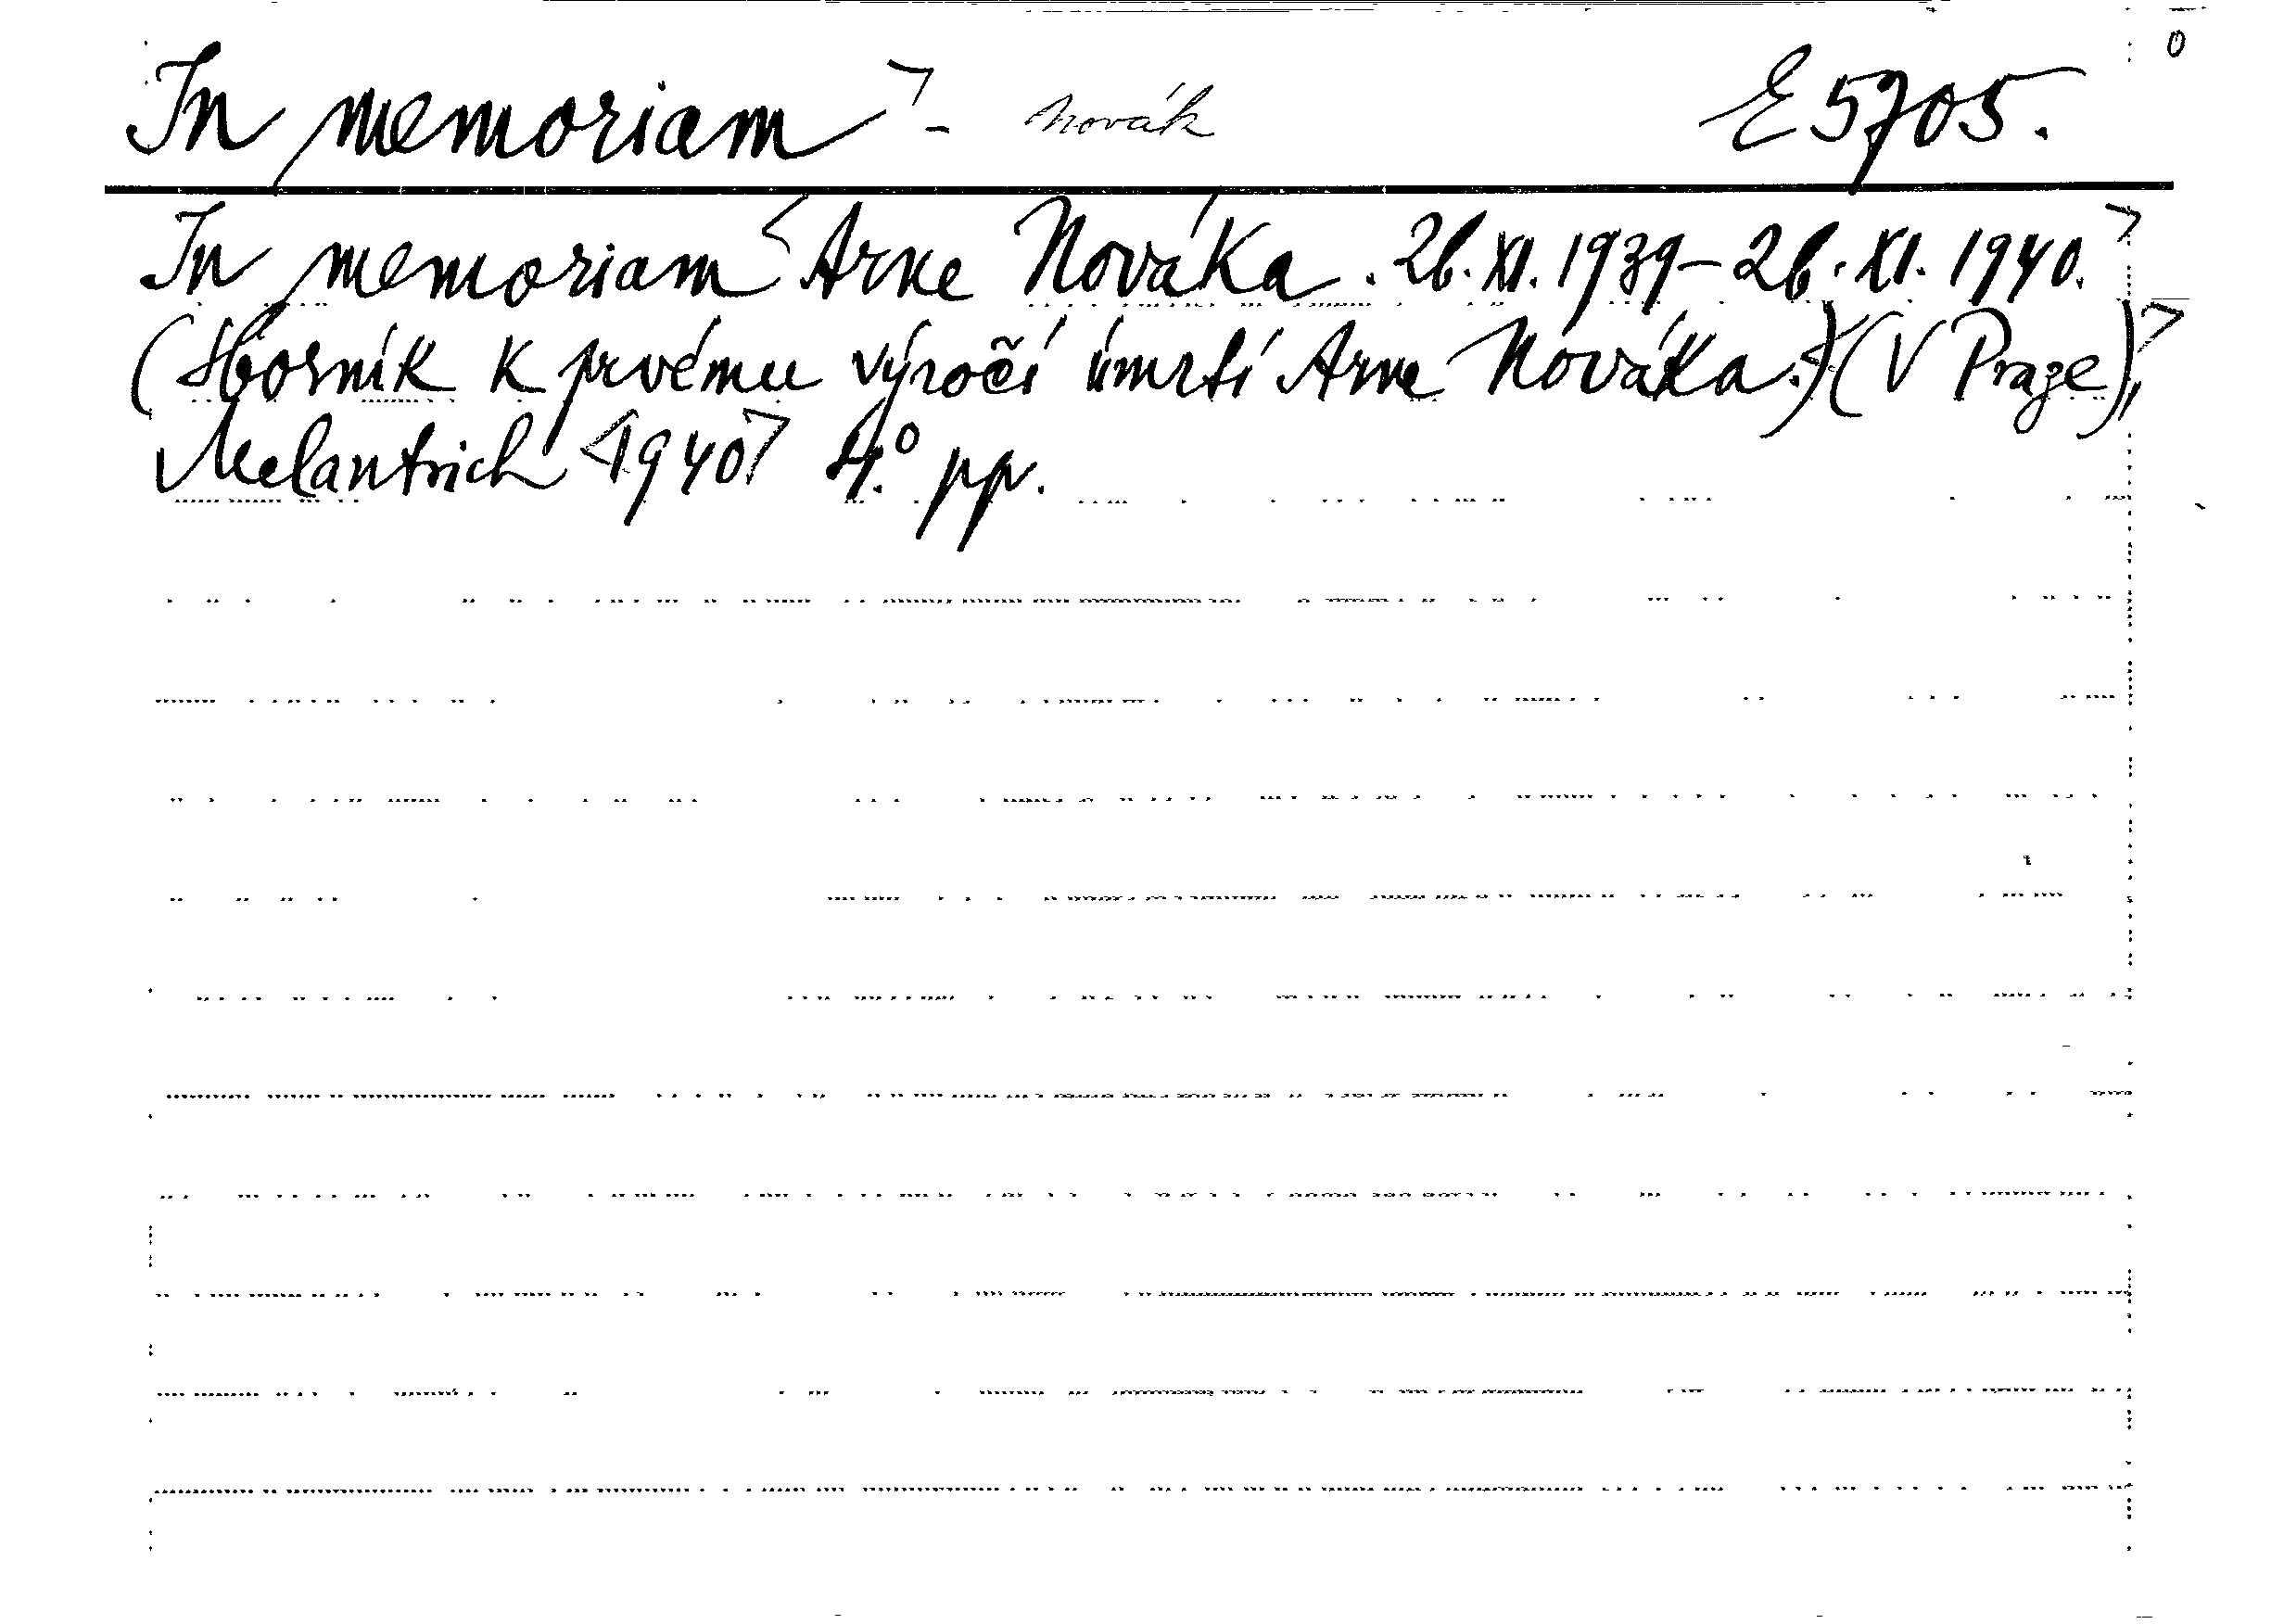 In memoriam - Novák E 5705.
0
In memoriam Arne Nováka. 26. XI. 1939 - 26. XI. 1940.
(Sborník k prvému výročí úmrtí Arne Nováka.) (V Praze),
Melantrich 1940 4.° pp.